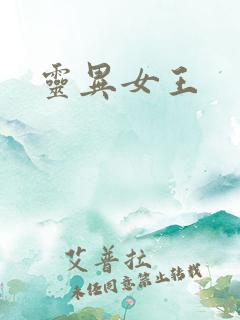 靈異女王
艾普拉
未經同意禁止轉載